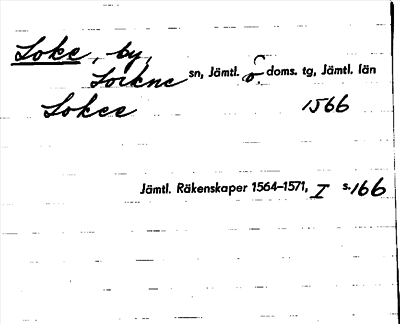 Loke, by,
Lockne sn, Jämtl. ö doms. tg, Jämtl. län
Lokee 1566
Jämtl. Räkenskaper 1564–1571, I s. 166